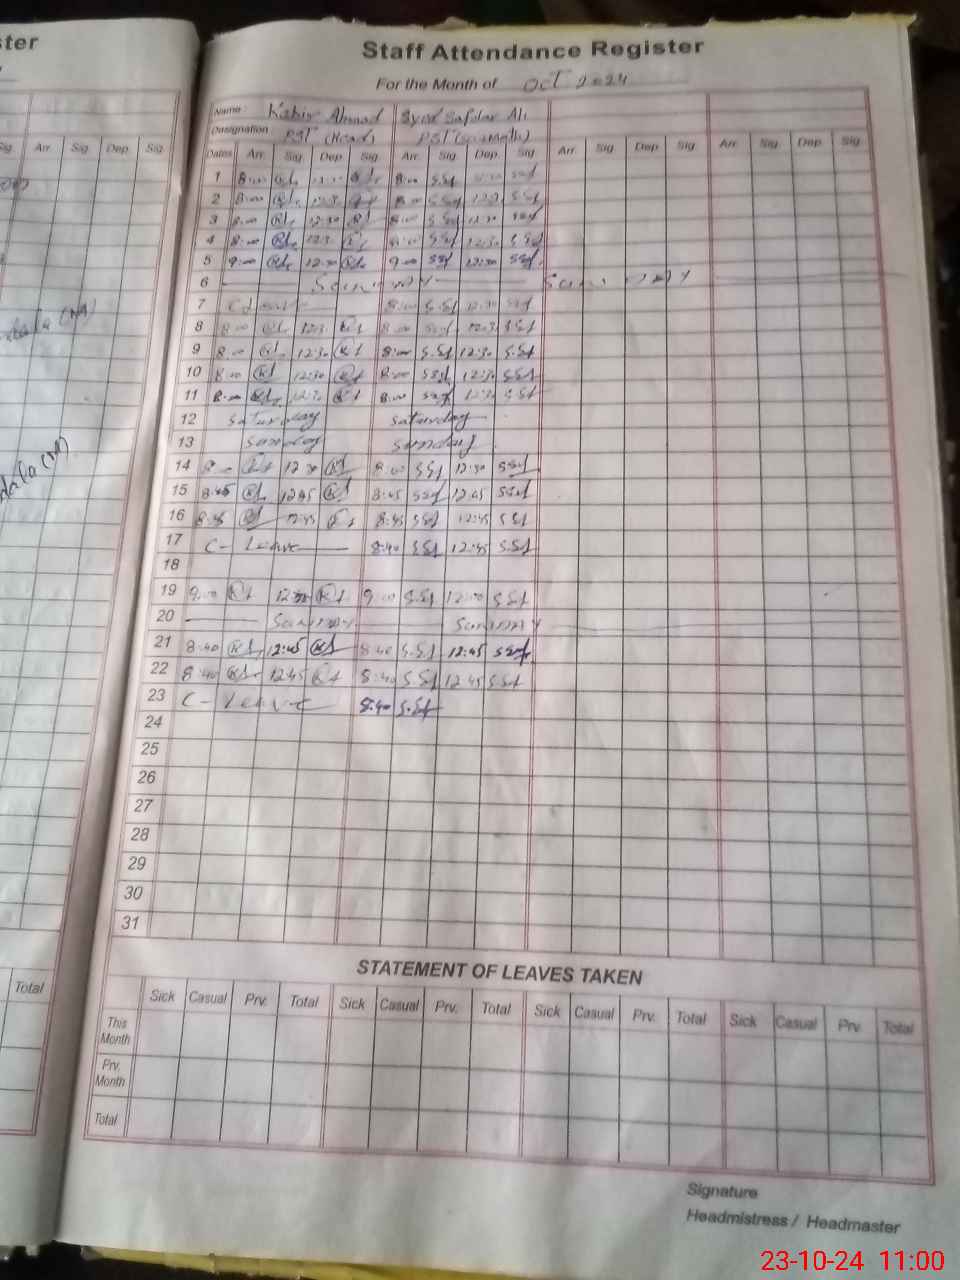 ster
Staff Attendance Register
For the Month of Oct 2024
Name : Kabir Ahmad Syed Safdar Ali
Designation PST (Head) PST
Sig. Arr. Sig. Dep. Sig.
Dates Arr. Sig. Dep. Sig. Arr. Sig. Dep. Sig. Arr. Sig. Dep. Sig. Arr. Sig. Dep. Sig.
1 8:00 8:00 S.Sf
2 8:00 12:30 8:00 S.Sf
3 8:00 12:30 8:00 S.Sf 12:30 S.Sf
4 8:00 12:30 8:00 S.Sf 12:30 S.Sf
5 9:00 12:30 9:00 S.Sf 12:30 S.Sf
6 Sunday Sunday
7 8:00 S.Sf 12:30 S.Sf
8 8:00 12:30 8:00 S.Sf 12:30 S.Sf
9 8:00 12:30 8:00 S.Sf 12:30 S.Sf
10 8:00 12:30 8:00 S.Sf 12:30 S.Sf
11 8:00 12:30 8:00 S.Sf 12:30 S.Sf
12 Saturday Saturday
13 Sunday Sunday
14 8:00 12:30 8:00 S.Sf 12:30 S.Sf
15 8:45 12:45 8:45 S.Sf 12:45 S.Sf
16 8:45 12:45 8:45 S.Sf 12:45 S.Sf
17 C- Leave 8:40 S.Sf 12:45 S.Sf
18
19 9:00 9:00 S.Sf 12:00 S.Sf
20 Sunday Sunday
21 8:40 12:45 8:40 S.Sf 12:45 S.Sf
22 8:40 12:45 8:40 S.Sf 12:45 S.Sf
23 C- Leave 8:40 S.Sf
24
25
26
27
28
29
30
31
STATEMENT OF LEAVES TAKEN
Total
Sick Casual Prv. Total Sick Casual Prv. Total Sick Casual Prv. Total Sick Casual Prv. Total
This Month
Prv. Month
Total
Signature
Headmistress / Headmaster
23-10-24 11:00